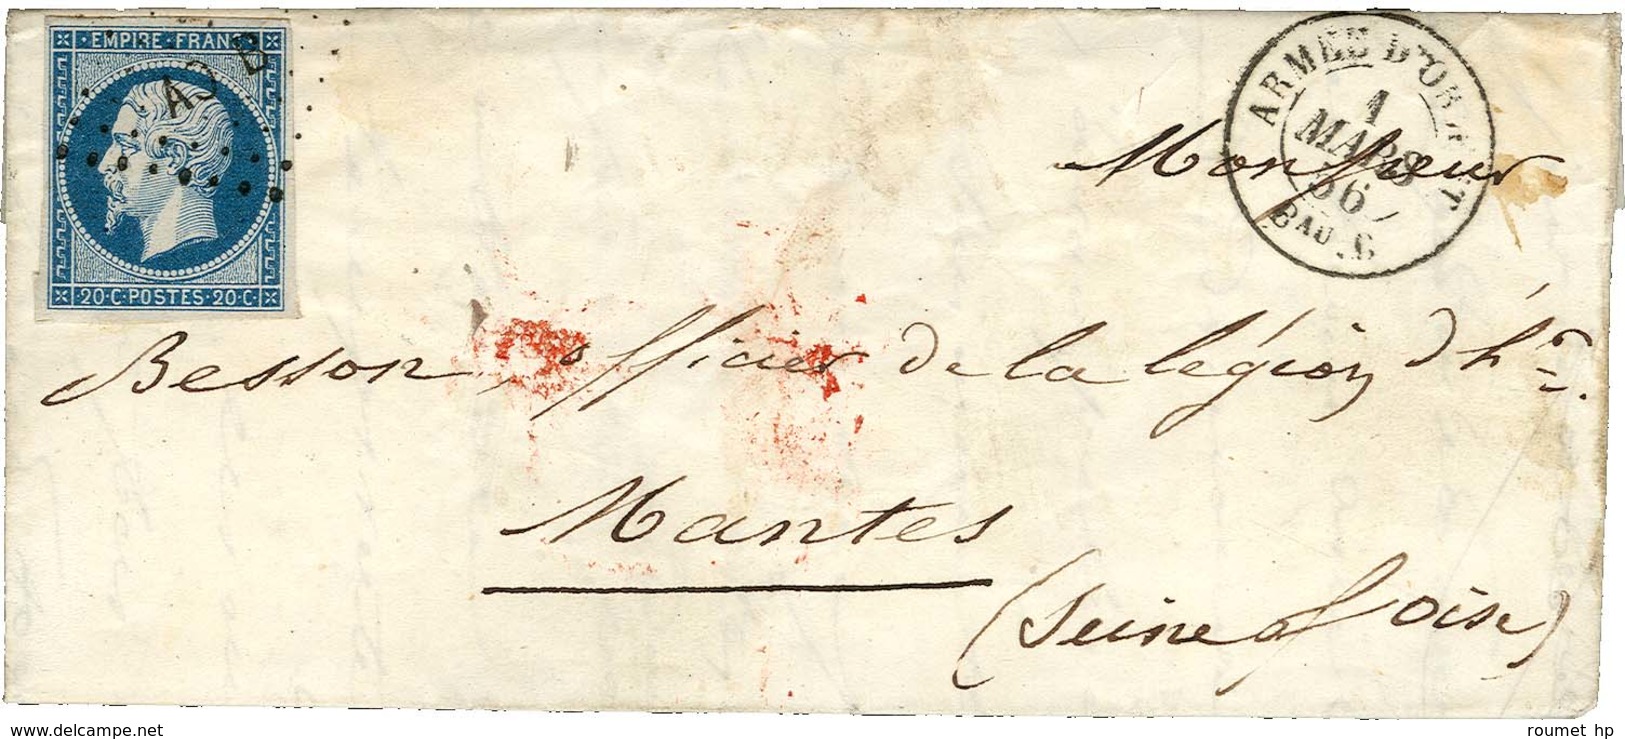 EMPIRE · FRANC
AO B
20 · C · POSTES · 20 · C ·
ARMÉE D'ORIENT
1
MARS
56
BAU . G
Monsieur
Besson, officier de la légion d'hr.
Mantes
(Seine et oise)
www.delcampe.net
roumet hp